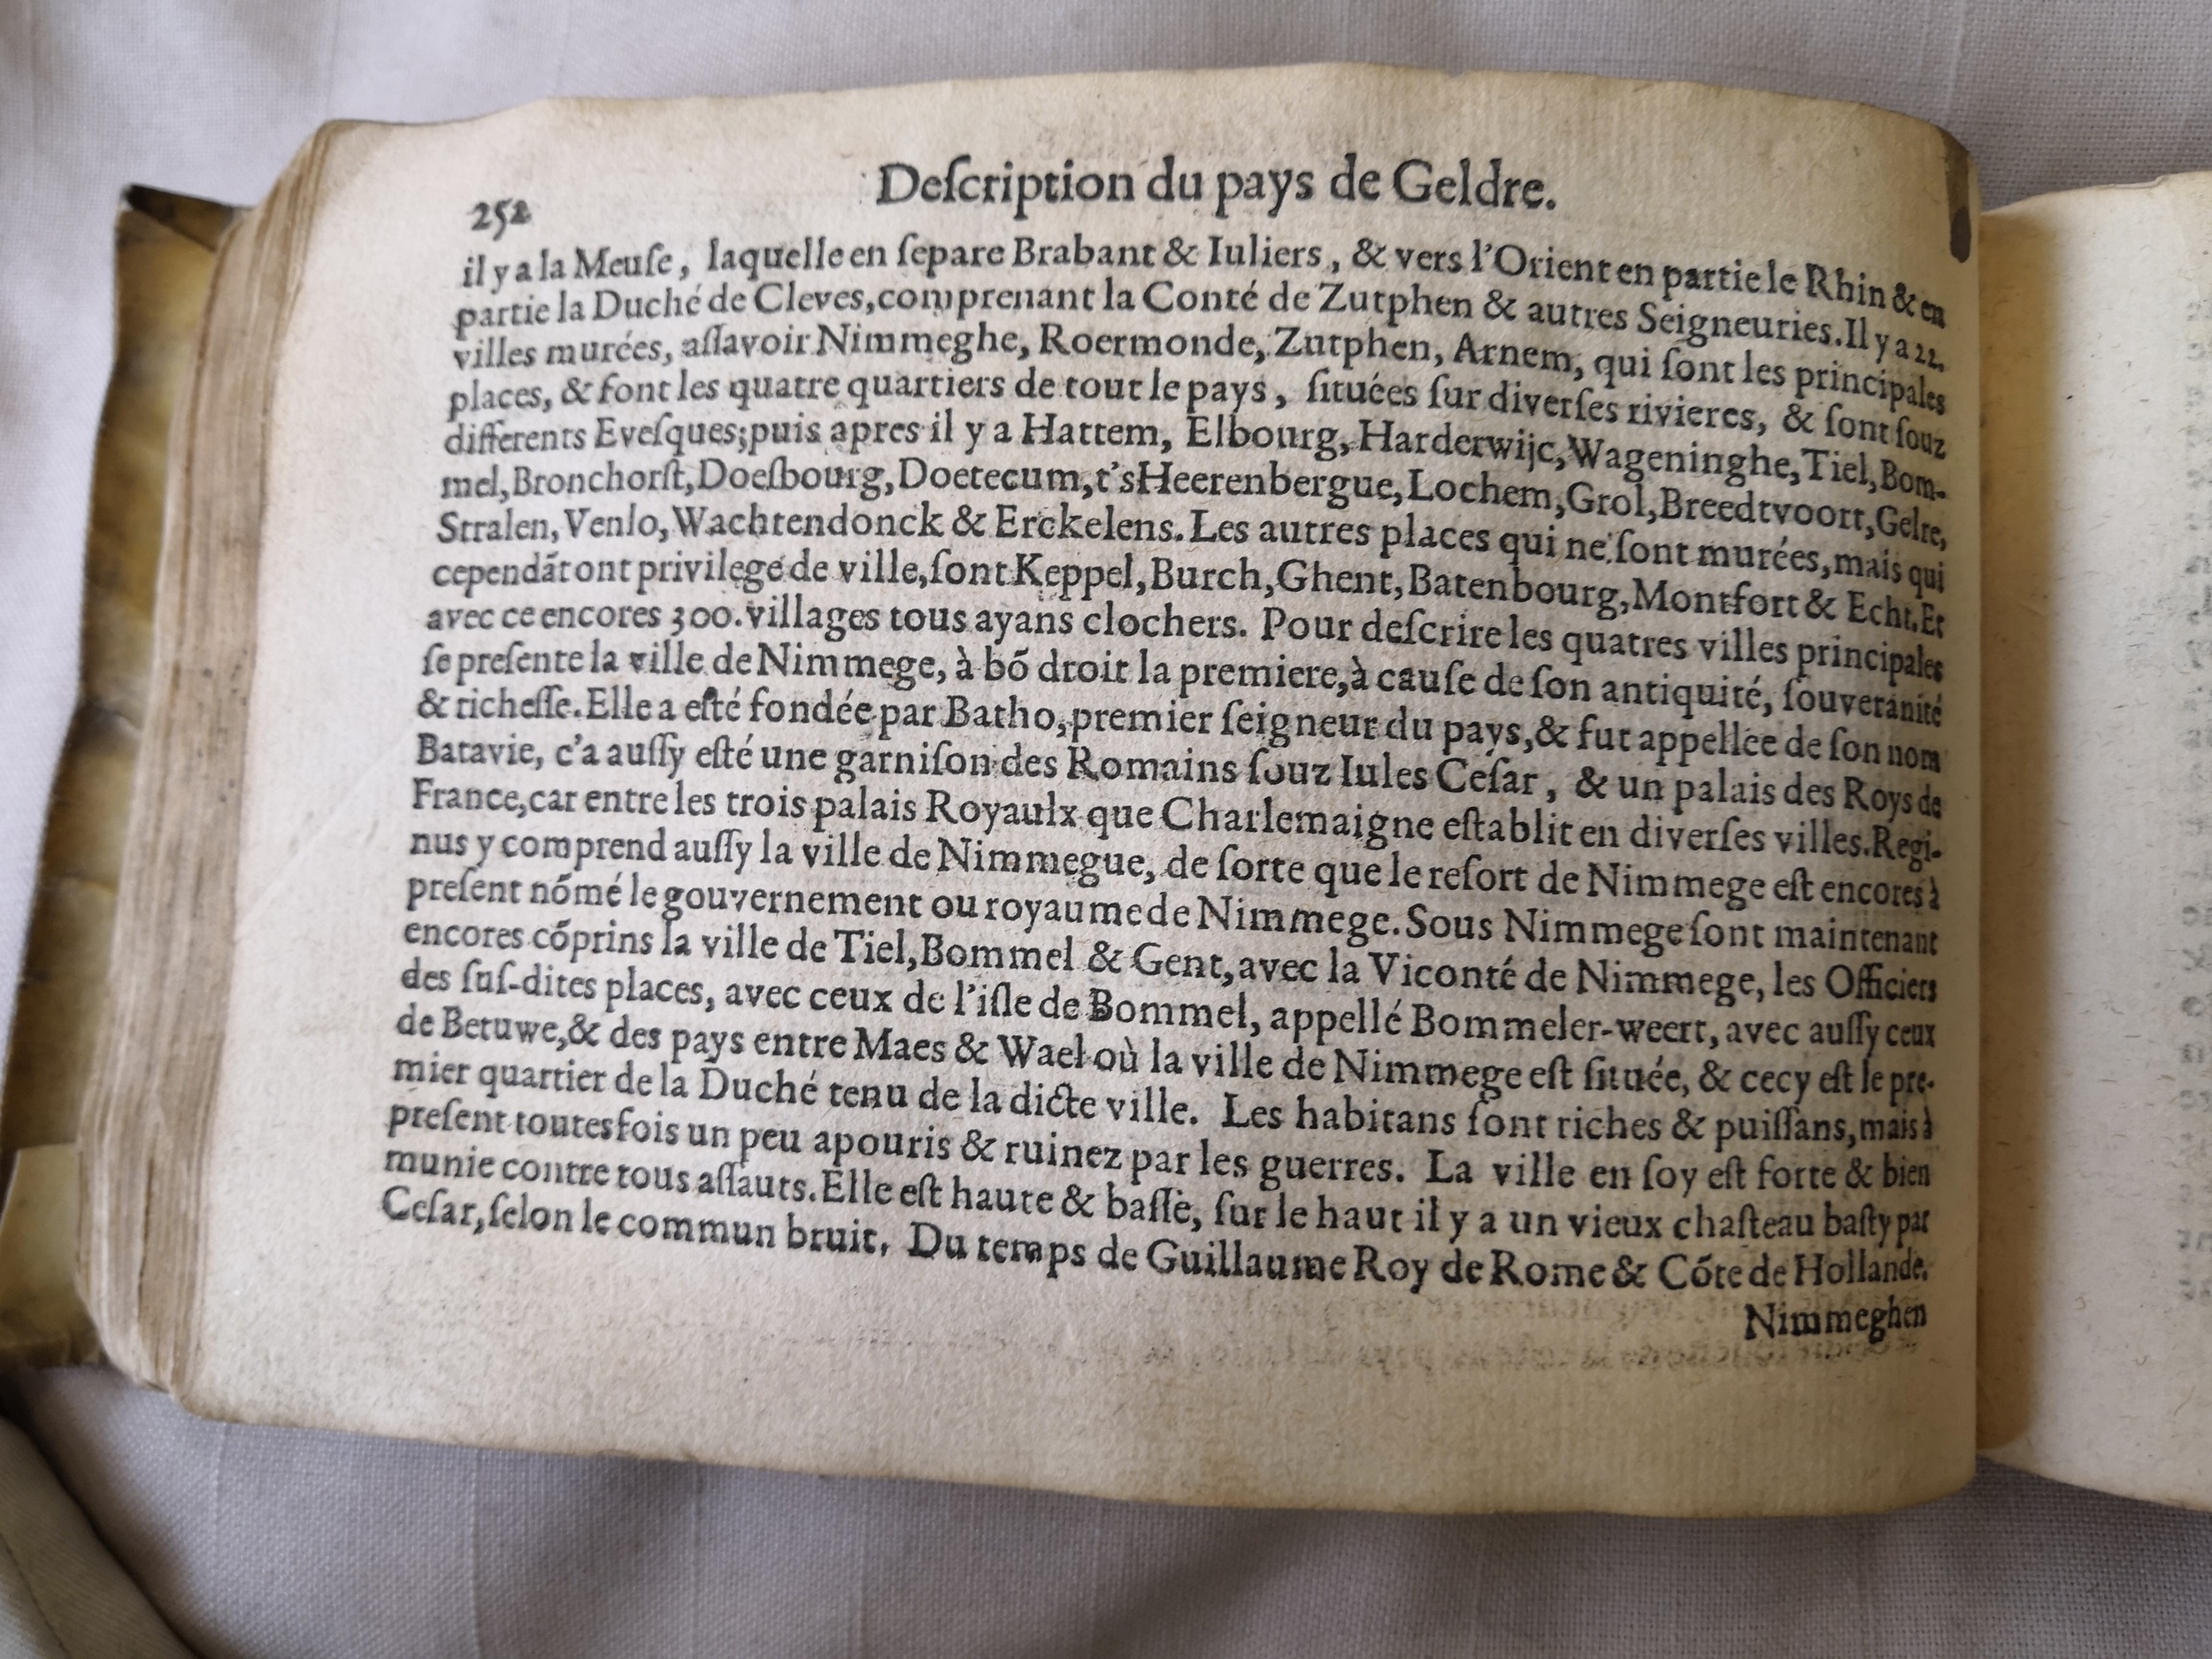 252
Deſcription du pays de Geldre.
il y a la Meuſe, laquelle en ſepare Brabant & Iuliers, & vers l'Orient en partie le Rhin & en
partie la Duché de Cleves, comprenant la Conté de Zutphen & autres Seigneuries. Il y a 22.
villes murées, aſſavoir Nimmeghe, Roermonde, Zutphen, Arnem, qui ſont les principales
places, & font les quatre quartiers de tout le pays, ſituées ſur diverſes rivieres, & ſont ſouz
differents Eveſques; puis apres il y a Hattem, Elbourg, Harderwijc, Wageninghe, Tiel, Bom-
mel, Bronchorſt, Doeſbourg, Doetecum, t'sHeerenbergue, Lochem, Grol, Breedtvoort, Gelre,
Stralen, Venlo, Wachtendonck & Erckelens. Les autres places qui ne ſont murées, mais qui
cependãt ont privilege de ville, ſont Keppel, Burch, Ghent, Batenbourg, Montfort & Echt. Et
avec ce encores 300. villages tous ayans clochers. Pour deſcrire les quatres villes principales
ſe preſente la ville de Nimmege, à bõ droit la premiere, à cauſe de ſon antiquité, ſouveranité
& richeſſe. Elle a eſté fondée par Batho, premier ſeigneur du pays, & fut appellée de ſon nom
Batavie, c'a auſſy eſté une garniſon des Romains ſouz Iules Ceſar, & un palais des Roys de
France, car entre les trois palais Royaulx que Charlemaigne eſtablit en diverſes villes. Regi-
nus y comprend auſſy la ville de Nimmegue, de ſorte que le reſort de Nimmege eſt encores à
preſent nõmé le gouvernement ou royaume de Nimmege. Sous Nimmege ſont maintenant
encores cõprins la ville de Tiel, Bommel & Gent, avec la Viconté de Nimmege, les Officiers
des ſuſ-dites places, avec ceux de l'iſle de Bommel, appellé Bommeler-weert, avec auſſy ceux
de Betuwe, & des pays entre Maes & Wael où la ville de Nimmege eſt ſituée, & cecy eſt le pre-
mier quartier de la Duché tenu de la dicte ville. Les habitans ſont riches & puiſſans, mais à
preſent toutesfois un peu apouris & ruinez par les guerres. La ville en ſoy eſt forte & bien
munie contre tous aſſauts. Elle eſt haute & baſſe, ſur le haut il y a un vieux chaſteau baſty par
Ceſar, ſelon le commun bruit. Du temps de Guillaume Roy de Rome & Cõte de Hollande.
Nimmeghen